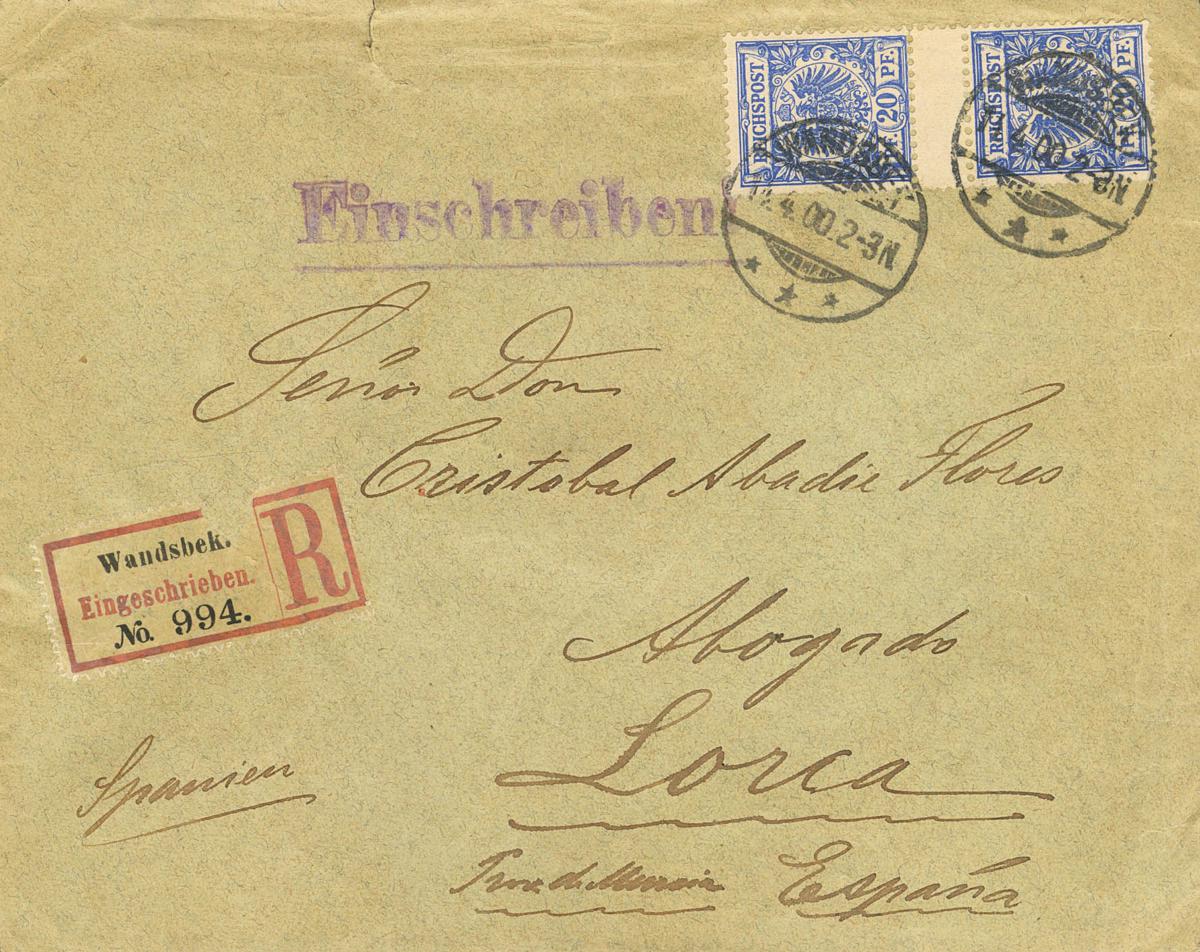 REICHSPOST 20 PF.
REICHSPOST PF.
Einschreiben!
4.00.2-3N.
4.00.2-3N
Señor Don
Cristobal Abadie Flores
Wandsbek.
Eingeschrieben.
No. 994.
R
Abogado
Lorca
Spanien
Prov. de Murcia España